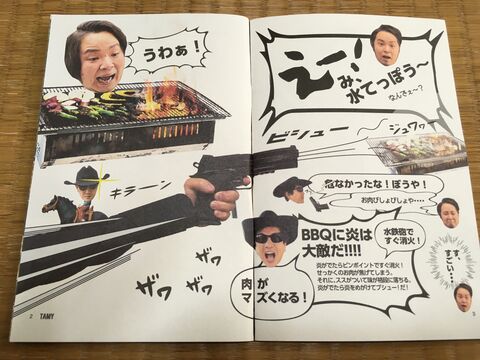 うわぁ!
キラーン
ザワ
ザワ
ザワ
2 TAMY
えー!
み、
水てっぽう〜
なんでぇ〜?
ビシュー
ジュワッ
危なかったな!ぼうや!
お肉びしょびしょや・・・・
BBQに炎は
大敵だ!!!!
炎がでたらピンポイントですぐ消火!
せっかくのお肉が焦げてしまう。
それに、ススがついて味が格段に落ちる。
炎がでたら炎をめがけてブシュー!だ!
水鉄砲で
すぐ消火!
す、
すごい・・・
肉が
マズくなる!
3